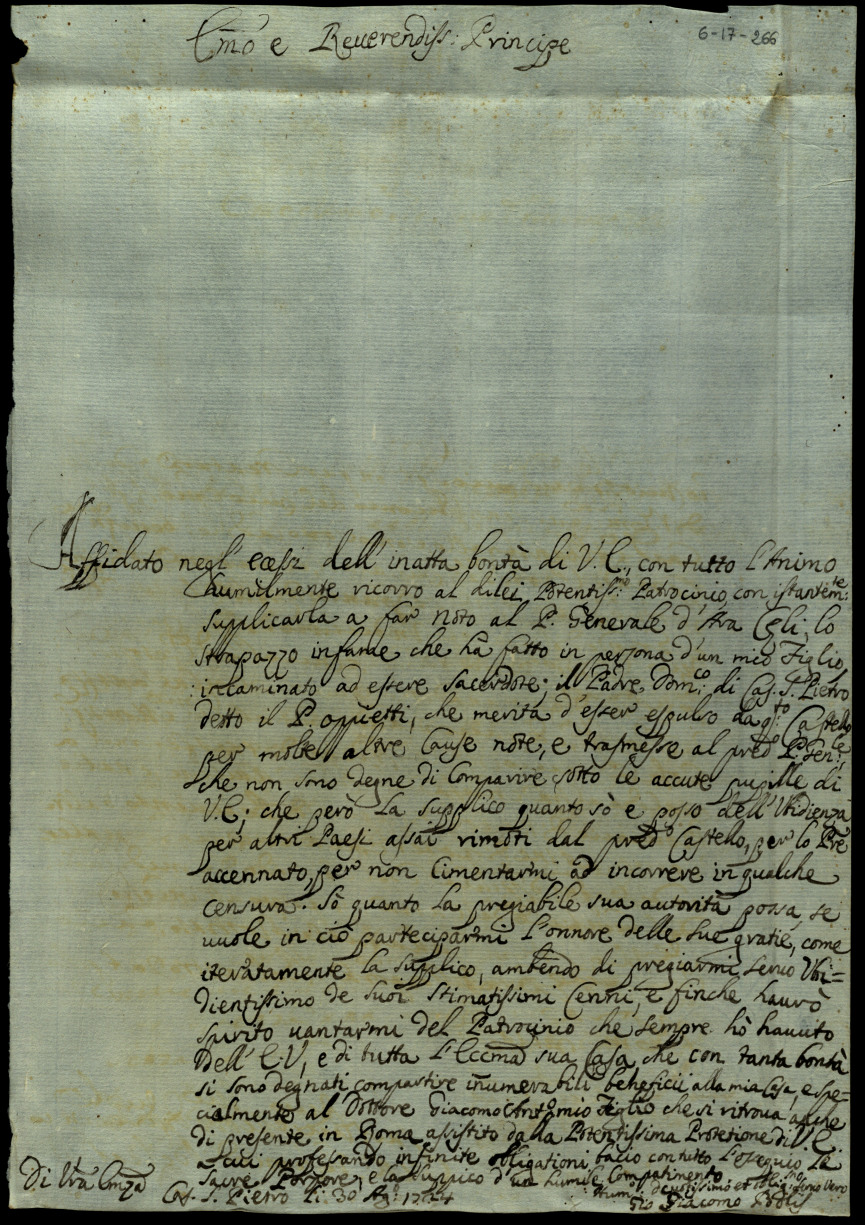 Em̃o e Reuerendiss: Principe
6-17-266
Affidato negl' ecessi dell' inatta bontà di V. E., con tutto l'Animo
humilmente ricorro al dilei Potentiss:mo Patrocinio, con istantem:te
supplicarla a far noto al P. Generale d'Ara Cęli, lo
strapazzo infame che hà fatto in persona d'un mio Figlio,
incaminato ad essere Sacerdote; il Padre Dom:co di Cas. S. Pietro
detto il P. , che merita d'esser espulso da q:to Castello
per molte altre Cause note, e trasmesse al pred:o P. Gen:le
che non sono degne di Comparire sotto le accute pupille di
V. E; che però La supplico quanto sò e posso dell' Vbidienza
per altri Paesi assai rimoti dal pred:o Castello, per lo P̃re
accennato, per non Cimentarmi ad incorrere in qualche
censura. Sò quanto La pregiabile sua autorità possa, se
uuole in ciò parteciparmi l'onnore delle Sue gratie, come
iteratamente La supplico, ambendo di pregiarmi seruo Vbi=
dientissimo de suoi Stimatissimi Cenni, e finche haurò
spirito uantarmi del Patrocinio che sempre hò hauuto
dell' E. V, e di tutta l'Eccm̃a sua Casa, che con tanta bontà
si sono degnati compartire iñumerabili beneficii alla mia Casa, e spe=
cialmente al Dottore Giacomo Antonio Figlio che si ritroua anche
di presente in Roma assistito dalla Potentissima Protetione di V. E.
a cui professando infinite obligationi bacio con tutto l'ossequio La
Sacre Porpore, e la suppico d'un humile Compatimento
Di Vr̃a Em̃za
Cas. S. Pietro li 30 1724
Hum:o deuotissimo et oblig:mo Seruo Vero
Gio Giacomo